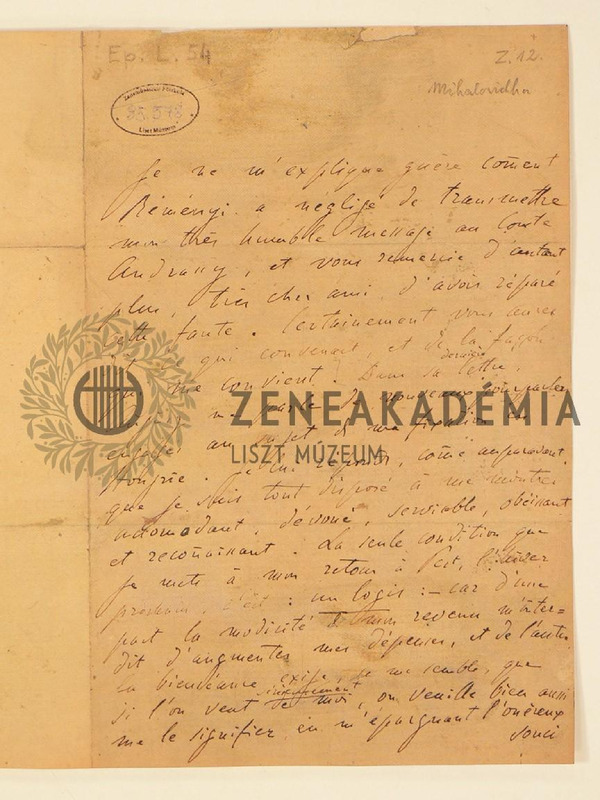 Ep. L. 54
Z. 12.
Mihalovichhoz
Liszt Múzeum
Je ne m'explique guère coment
Réményi a négligé de transmettre
mon très humble message au Comte
Andrassy, et vous remercie d'autant
plus, très cher ami, d'avois réparé
cette faute. Certainement vous aurez
qui convenait, et de la façon
me convient. Dans sa dernière lettre,
me parle de nouveaux pourparlers
engagés au sujet de ma fixation en
Hongrie. Je lui réponds, comme auparavant
que je suis tout disposé à me montrer
accomodant, dévoué, serviable, obéissant
et reconnaissant. La seule condition que
je mets à mon retour à Pest, l'hiver
prochain, c'est: un logis: – car d'une
part la modicité de mon revenu m'inter=
dit d'augmenter mes dépenses, et de l'autre
la bienséance exige, ce me semble, que
si l'on veut de moi, on veuille bien aussi
me le signifier en m'épargnant l'onéreux
souci
ZENEAKADÉMIA
LISZT MÚZEUM